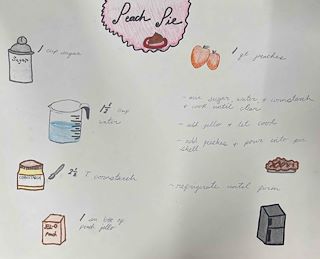 Peach Pie
1 cup sugar
Sugar
1 qt peaches
1 1/2 cup
water
- mix sugar, water + cornstarch
+ cook until clear
- add jello + let cool
- add peaches + pour into pie
shell
2 1/2 T cornstarch
- refrigerate until firm
JELL-O
Peach
1 sm box of
peach jello